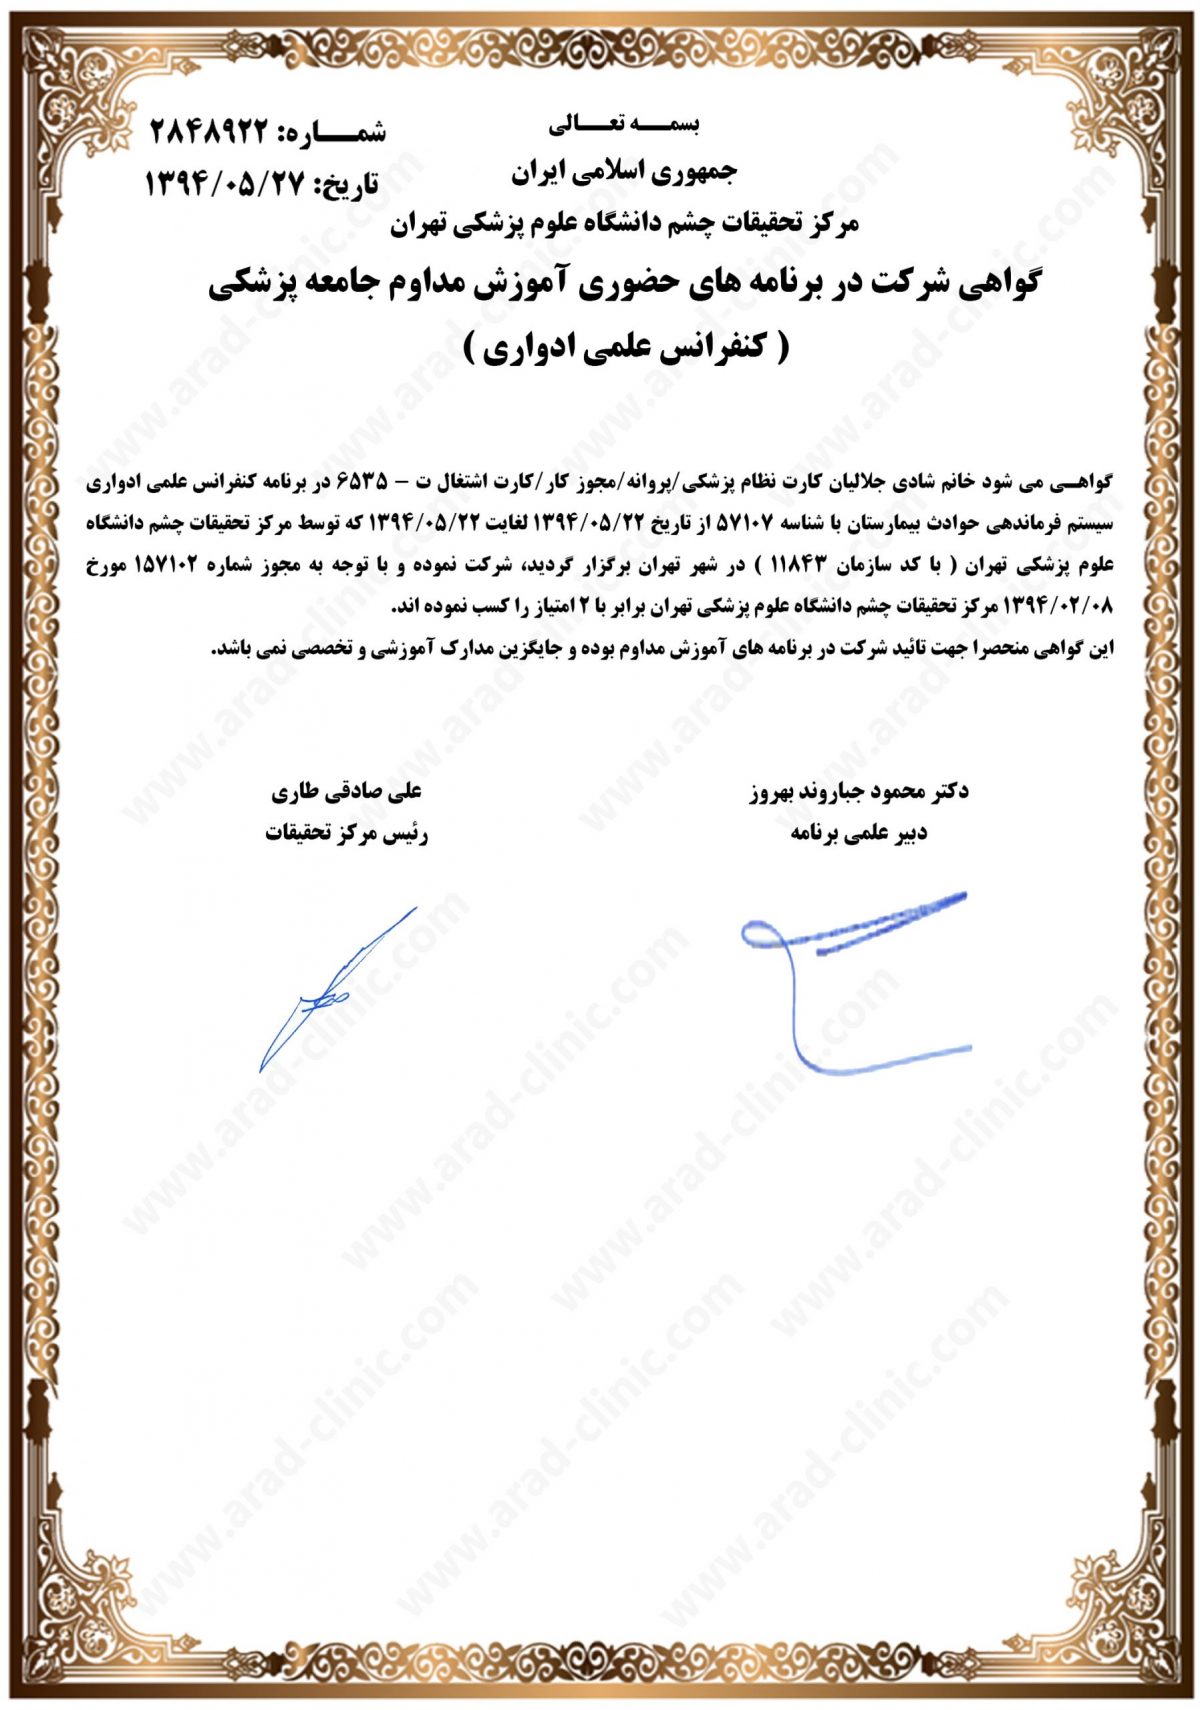 بسمـــه تعـــالی
جمهوری اسلامی ایران
مرکز تحقیقات چشم دانشگاه علوم پزشکی تهران
شمـــاره: ۲۸۴۸۹۲۲
تاریخ: ۱۳۹۴/۰۵/۲۷
گواهی شرکت در برنامه های حضوری آموزش مداوم جامعه پزشکی
( کنفرانس علمی ادواری )
گواهــی می شود خانم شادی جلالیان کارت نظام پزشکی/پروانه/مجوز کار/کارت اشتغال ت - ۶۵۳۵ در برنامه کنفرانس علمی ادواری
سیستم فرماندهی حوادث بیمارستان با شناسه ۵۷۱۰۷ از تاریخ ۱۳۹۴/۰۵/۲۲ لغایت ۱۳۹۴/۰۵/۲۲ که توسط مرکز تحقیقات چشم دانشگاه
علوم پزشکی تهران ( با کد سازمان ۱۱۸۴۳ ) در شهر تهران برگزار گردید، شرکت نموده و با توجه به مجوز شماره ۱۵۷۱۰۲ مورخ
۱۳۹۴/۰۲/۰۸ مرکز تحقیقات چشم دانشگاه علوم پزشکی تهران برابر با ۲ امتیاز را کسب نموده اند.
این گواهی منحصرا جهت تائید شرکت در برنامه های آموزش مداوم بوده و جایگزین مدارک آموزشی و تخصصی نمی باشد.
دکتر محمود جباروند بهروز
دبیر علمی برنامه
علی صادقی طاری
رئیس مرکز تحقیقات
www.arad-clinic.com